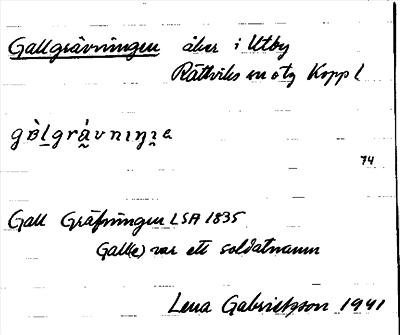 Gallgrävningen åker i Utby
Rättviks sn o tg Kopp l
74
Gall Gräfningen LSA 1835
Gall(e) var ett soldatnamn
Lena Gabrielsson 1941